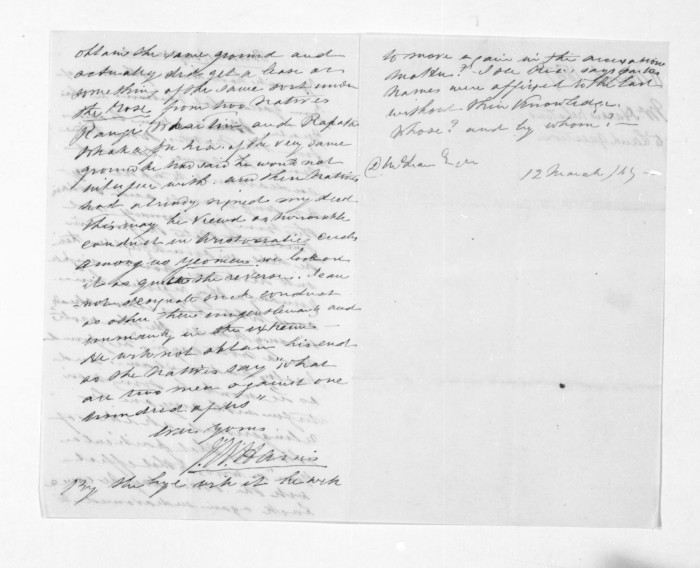 obtain the same ground and
actually did get a lease or
something of the same sort under
the Rose from two natives
Rangi Whaartino and Rapata
Whaka for him, of the very same
ground he had said he would not
interfere with and their natives
had already signed my deed
this may be viewed as honorable
conduct in Aristocratic circles
among us yeomen we look on
it as quite the reverse. I can
not designate such conduct
as other than ungentlemanly and
unmanly in the extreme —
He will not obtain his end
as the natives say "what
are two men against one
hundred of us"
Yours
J. W. Harris
By the bye will it be well
to move again in the
matter? I see says
names were affixed to the last
without their knowledge.
Whose? and by whom? —
D McLean Esqr
12 March /69 —